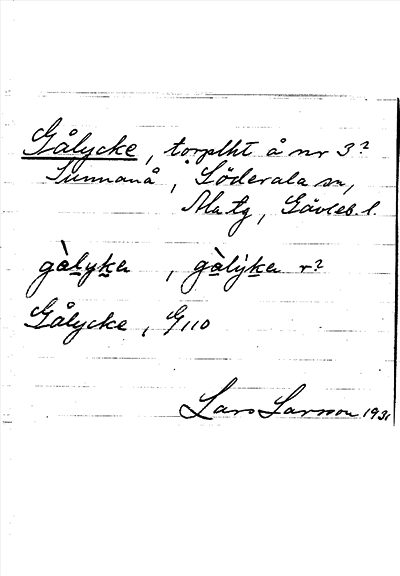 Gålycke, torplht å nr 3?
Sunnanå, Söderala sn,
Ala tg, Gävleb. l.
gàlyka, gàlýka r?
Gålycke, G110
Lars Larsson 1931